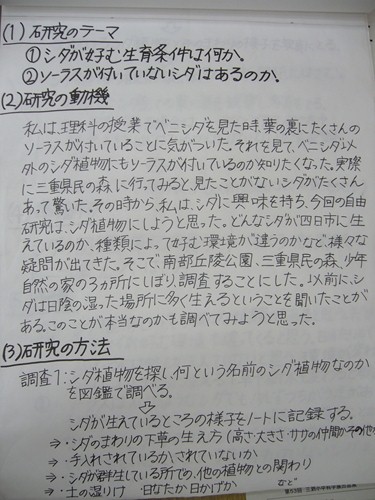 (1) 研究のテーマ
① シダが好む生育条件は何か。
② ソーラスが付いていないシダはあるのか。
(2)研究の動機
私は、理科の授業でベニシダを見た時、葉の裏にたくさんの
ソーラスが付いていることに気がついた。それを見て、ベニシダ以
外のシダ植物にもソーラスが付いているのか知りたくなった。実際
に三重県民の森に行ってみると、見たことがないシダがたくさん
あって驚いた。その時から、私は、シダに興味を持ち、今回の自由
研究は、シダ植物にしようと思った。どんなシダが四日市に生
えているのか、種類によって好む環境が違うのかなど、様々な
疑問が出てきた。そこで、南部丘陵公園、三重県民の森、少年
自然の家の3ヵ所にしぼり、調査することにした。以前に、シ
ダは日陰の湿った場所に多く生えるということを聞いたことが
ある。このことが本当なのかも調べてみようと思った。
(3)研究の方法
調査1:シダ植物を探し、何という名前のシダ植物なのか
を図鑑で調べる。
⇩
シダが生えているところの様子をノートに記録する。
⇒・シダのまわりの下草の生え方(高さ・大きさ・ササの仲間かその他
⇒・手入れされているかされていないか
⇒・シダが群生している所での、他の植物との関わり
⇒・土の湿りけ ・日なたか日かげか など